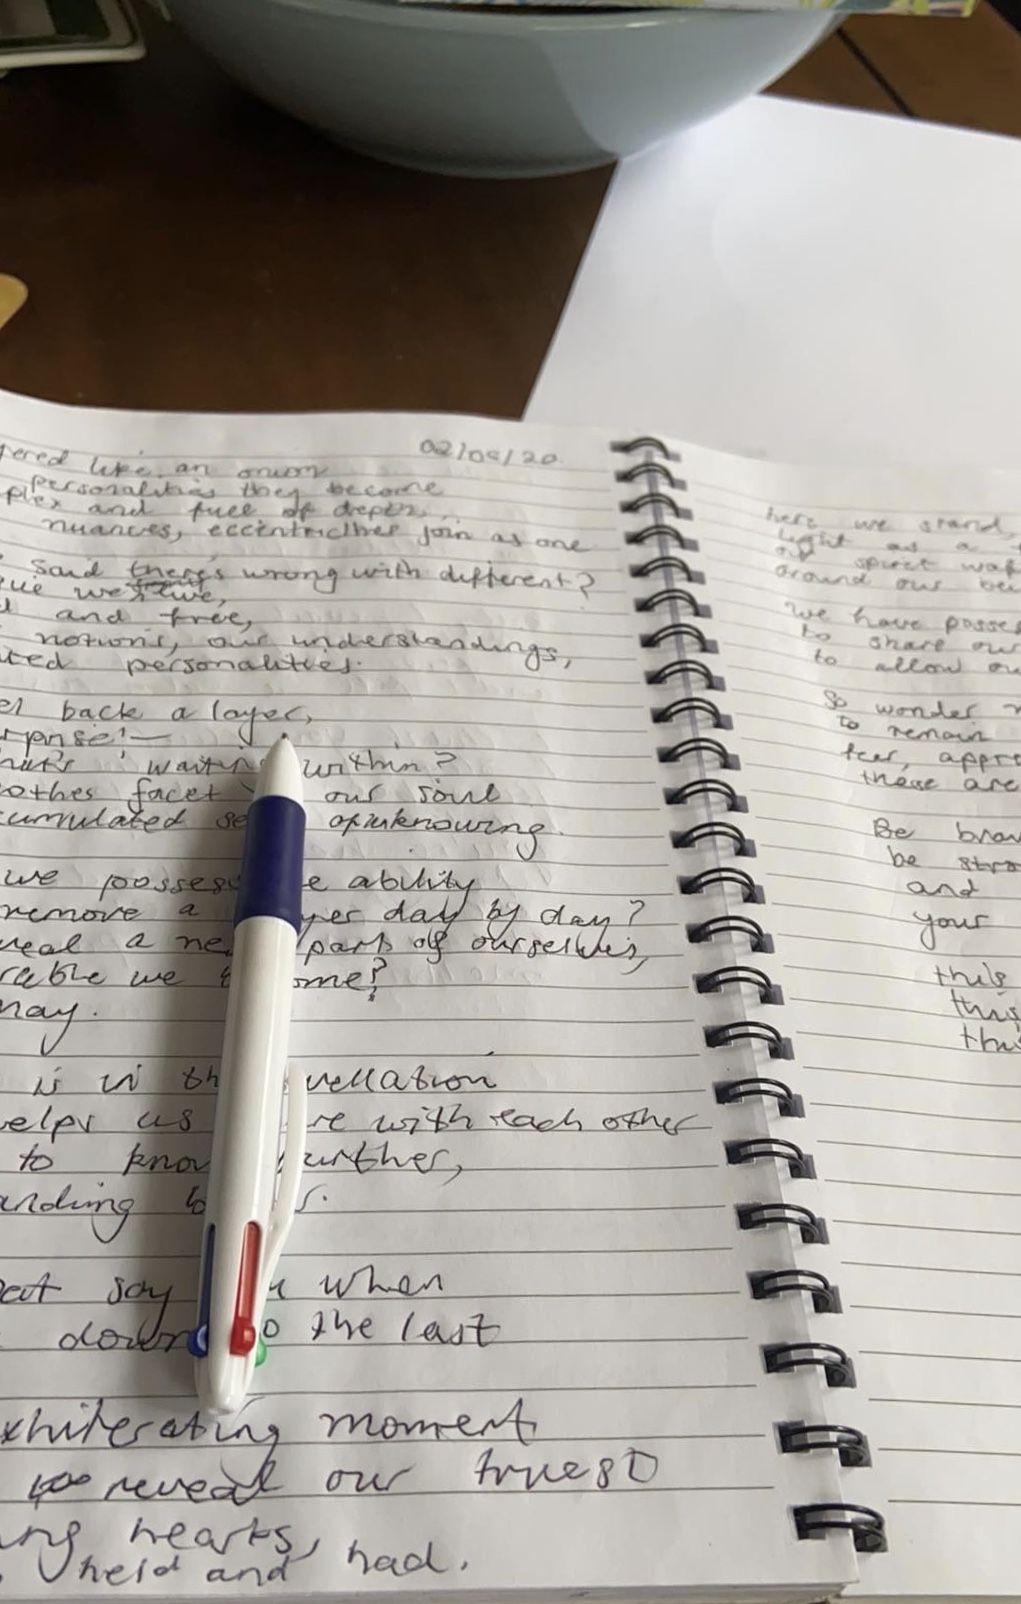 02/05/20
ered like an onion
personalities they become
plex and full of depth,
nuances, eccentricities join as one
said there's wrong with different?
we live,
and free,
notions, our understandings,
ted personalities.
back a layer,
rprise! —
hat's waiting within?
other facet our soul
cumulated se of unknowing.
we possess e ability
remove a yer day by day?
veal a ne part of ourselves,
rable we ome?
may.
is in th vellation
elps us re with each other
to know urther,
anding b s.
eat say u when
down to the last
xhilerating moment
reveal our truest
ng hearts,
held and had.
here we stand,
light as a f
our spirit waf
around our be
We have posses
to share our
to allow ou
So wonder n
to remain
fear, appre
these are
Be brav
be stro
and
your
this
this
this